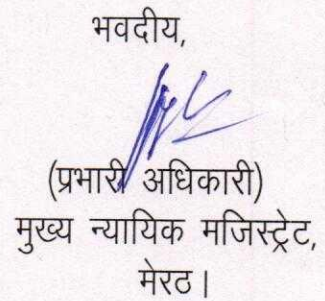 भवदीय,
(प्रभारी अधिकारी)
मुख्य न्यायिक मजिस्ट्रेट,
मेरठ।